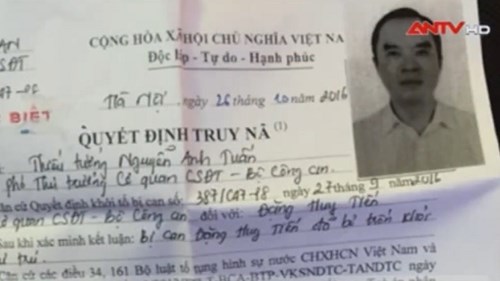 ANTV HD
CỘNG HÒA XÃ HỘI CHỦ NGHĨA VIỆT NA
Độc lập - Tự do - Hạnh phúc
AN
CSĐT
A7-P8
BIỆT
Hà Nội, ngày 26 tháng 10 năm 2016
QUYẾT ĐỊNH TRUY NÃ (1)
Thiếu tướng Nguyễn Anh Tuấn
phó Thủ trưởng Cơ quan CSĐT - Bộ Công an.
ăn cứ Quyết định khởi tố bị can số: 387/CA7-P8, ngày 27 tháng 9 năm 2016
Cơ quan CSĐT - Bộ Công an đối với: Đặng Huy Tiến
Sau khi xác minh kết luận: Bị can Đặng Huy Tiến đã bỏ trốn khỏi
trú.
Căn cứ các điều 34, 161 Bộ luật tố tụng hình sự nước CHXHCN Việt Nam và
T-BCA-BTP-VKSNDTC-TANDTC ngày